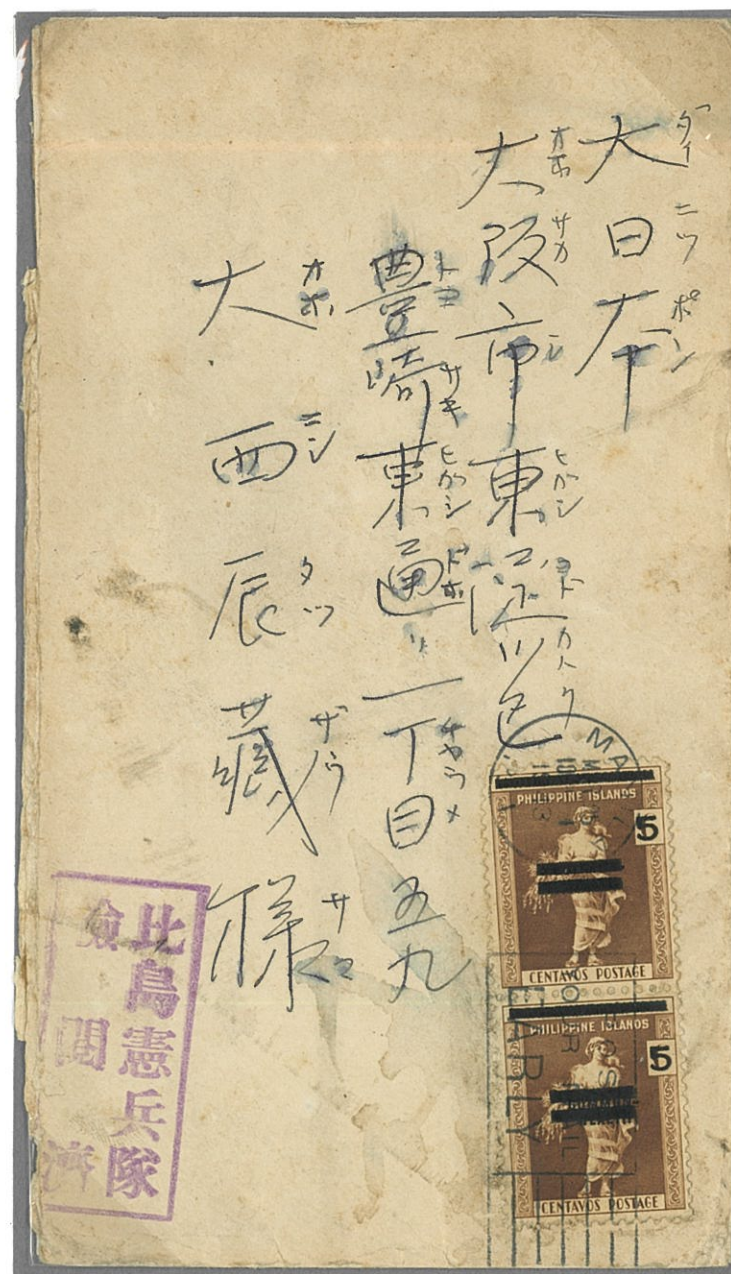 大日本
ダイニツポン
大阪市東淀川区
オホサカシヒガシヨドカハク
豊崎東通一丁目五九
トヨサキヒガシドホリチヤウメ
大西辰藏様
オホニシタツザウサマ
比島憲兵隊
檢閲濟
PHILIPPINE ISLANDS
5
CENTAVOS POSTAGE
PHILIPPINE ISLANDS
5
CENTAVOS POSTAGE
POST
YOUR MAIL
EARLY